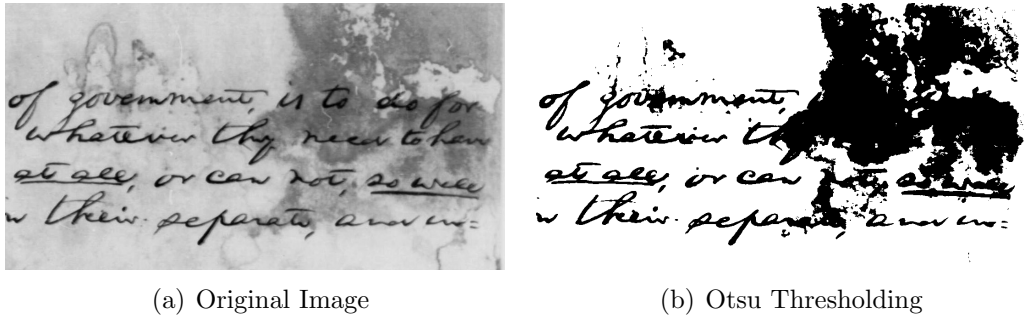 of government, is to do for
whatever they need to have
at all, or can not, so well
n their separate, and in=
(a) Original Image
of government,
whatever
at all, or can not, so well
n their separate, and in=
(b) Otsu Thresholding